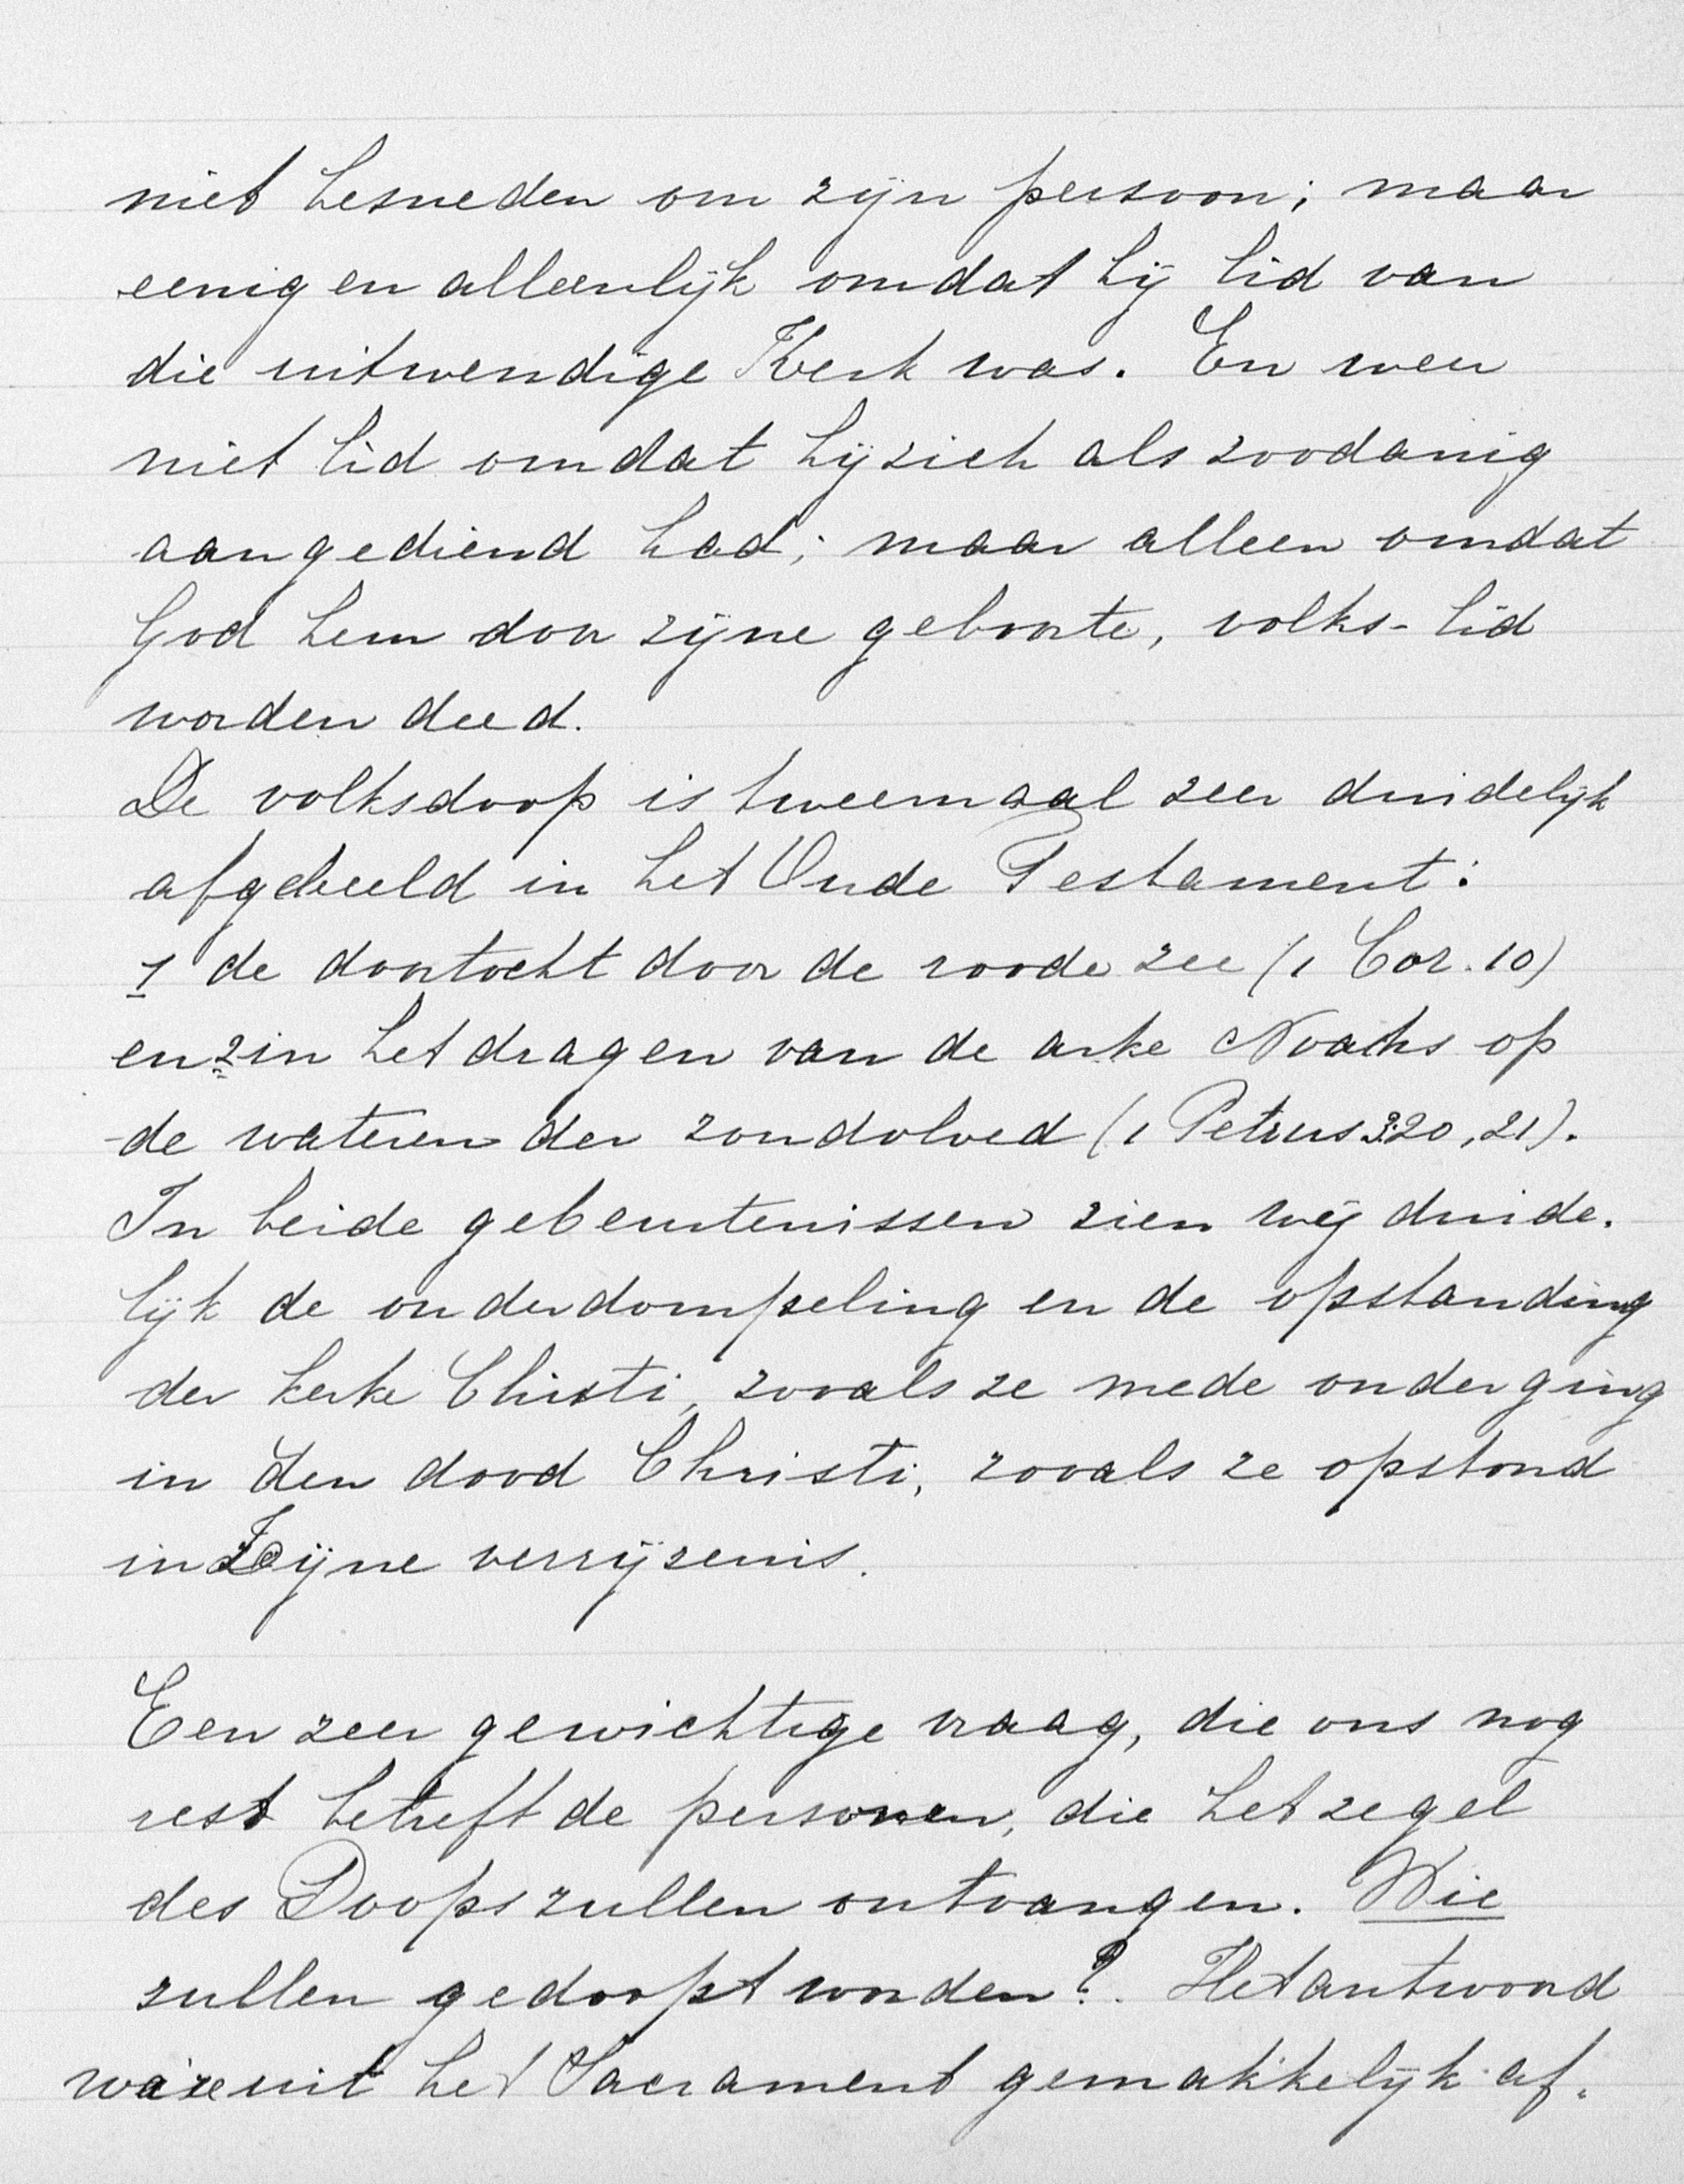 niet besneden om zijn persoon; maar
eenig en alleenlijk omdat hij lid van
die uitwendige Kerk was. En weer
niet lid omdat hij zich als zoodanig
aangediend had; maar alleen omdat
God hem door zijne geboorte, volks-lid
worden deed.
De volksdoop is tweemaal zeer duidelijk
afgebeeld in het Oude Testament:
1 de doortocht door de roode zee (1 Cor. 10)
en 2 in het dragen van de arke Noachs op
de wateren der zondvloed (1 Petrus 3:20, 21).
In beide gebeurtenissen zien wij duide-
lijk de onderdompeling en de opstanding
der kerke Christi, zooals ze mede onderging
in den dood Christi, zooals ze opstond
in Zijne verrijzenis.
Een zeer gewichtige vraag, die ons nog
rest betreft de personen, die het zegel
des Doops zullen ontvangen. Wie
zullen gedoopt worden? Het antwoord
ware uit het Sacrament gemakkelijk af-